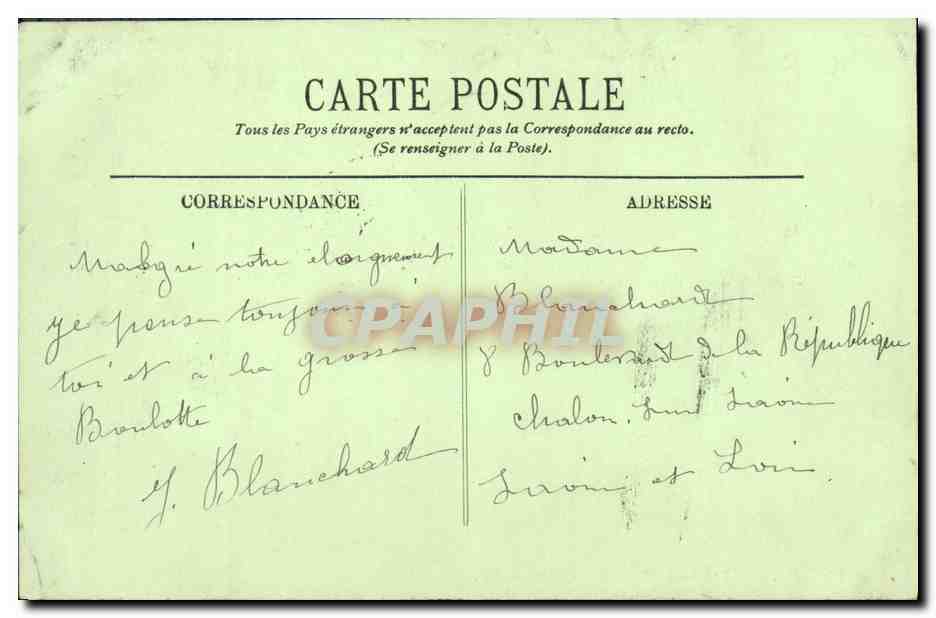 CARTE POSTALE
Tous les Pays étrangers n'acceptent pas la Correspondance au recto.
(Se renseigner à la Poste).
CORRESPONDANCE
Malgré notre éloignement
je pense toujours à
toi et à la grosse
Boulotte
J. Blanchard
ADRESSE
Madame
Blanchard
8 Boulevard de la République
Chalon sur Saône
Saône et Loire
CPAPHIL